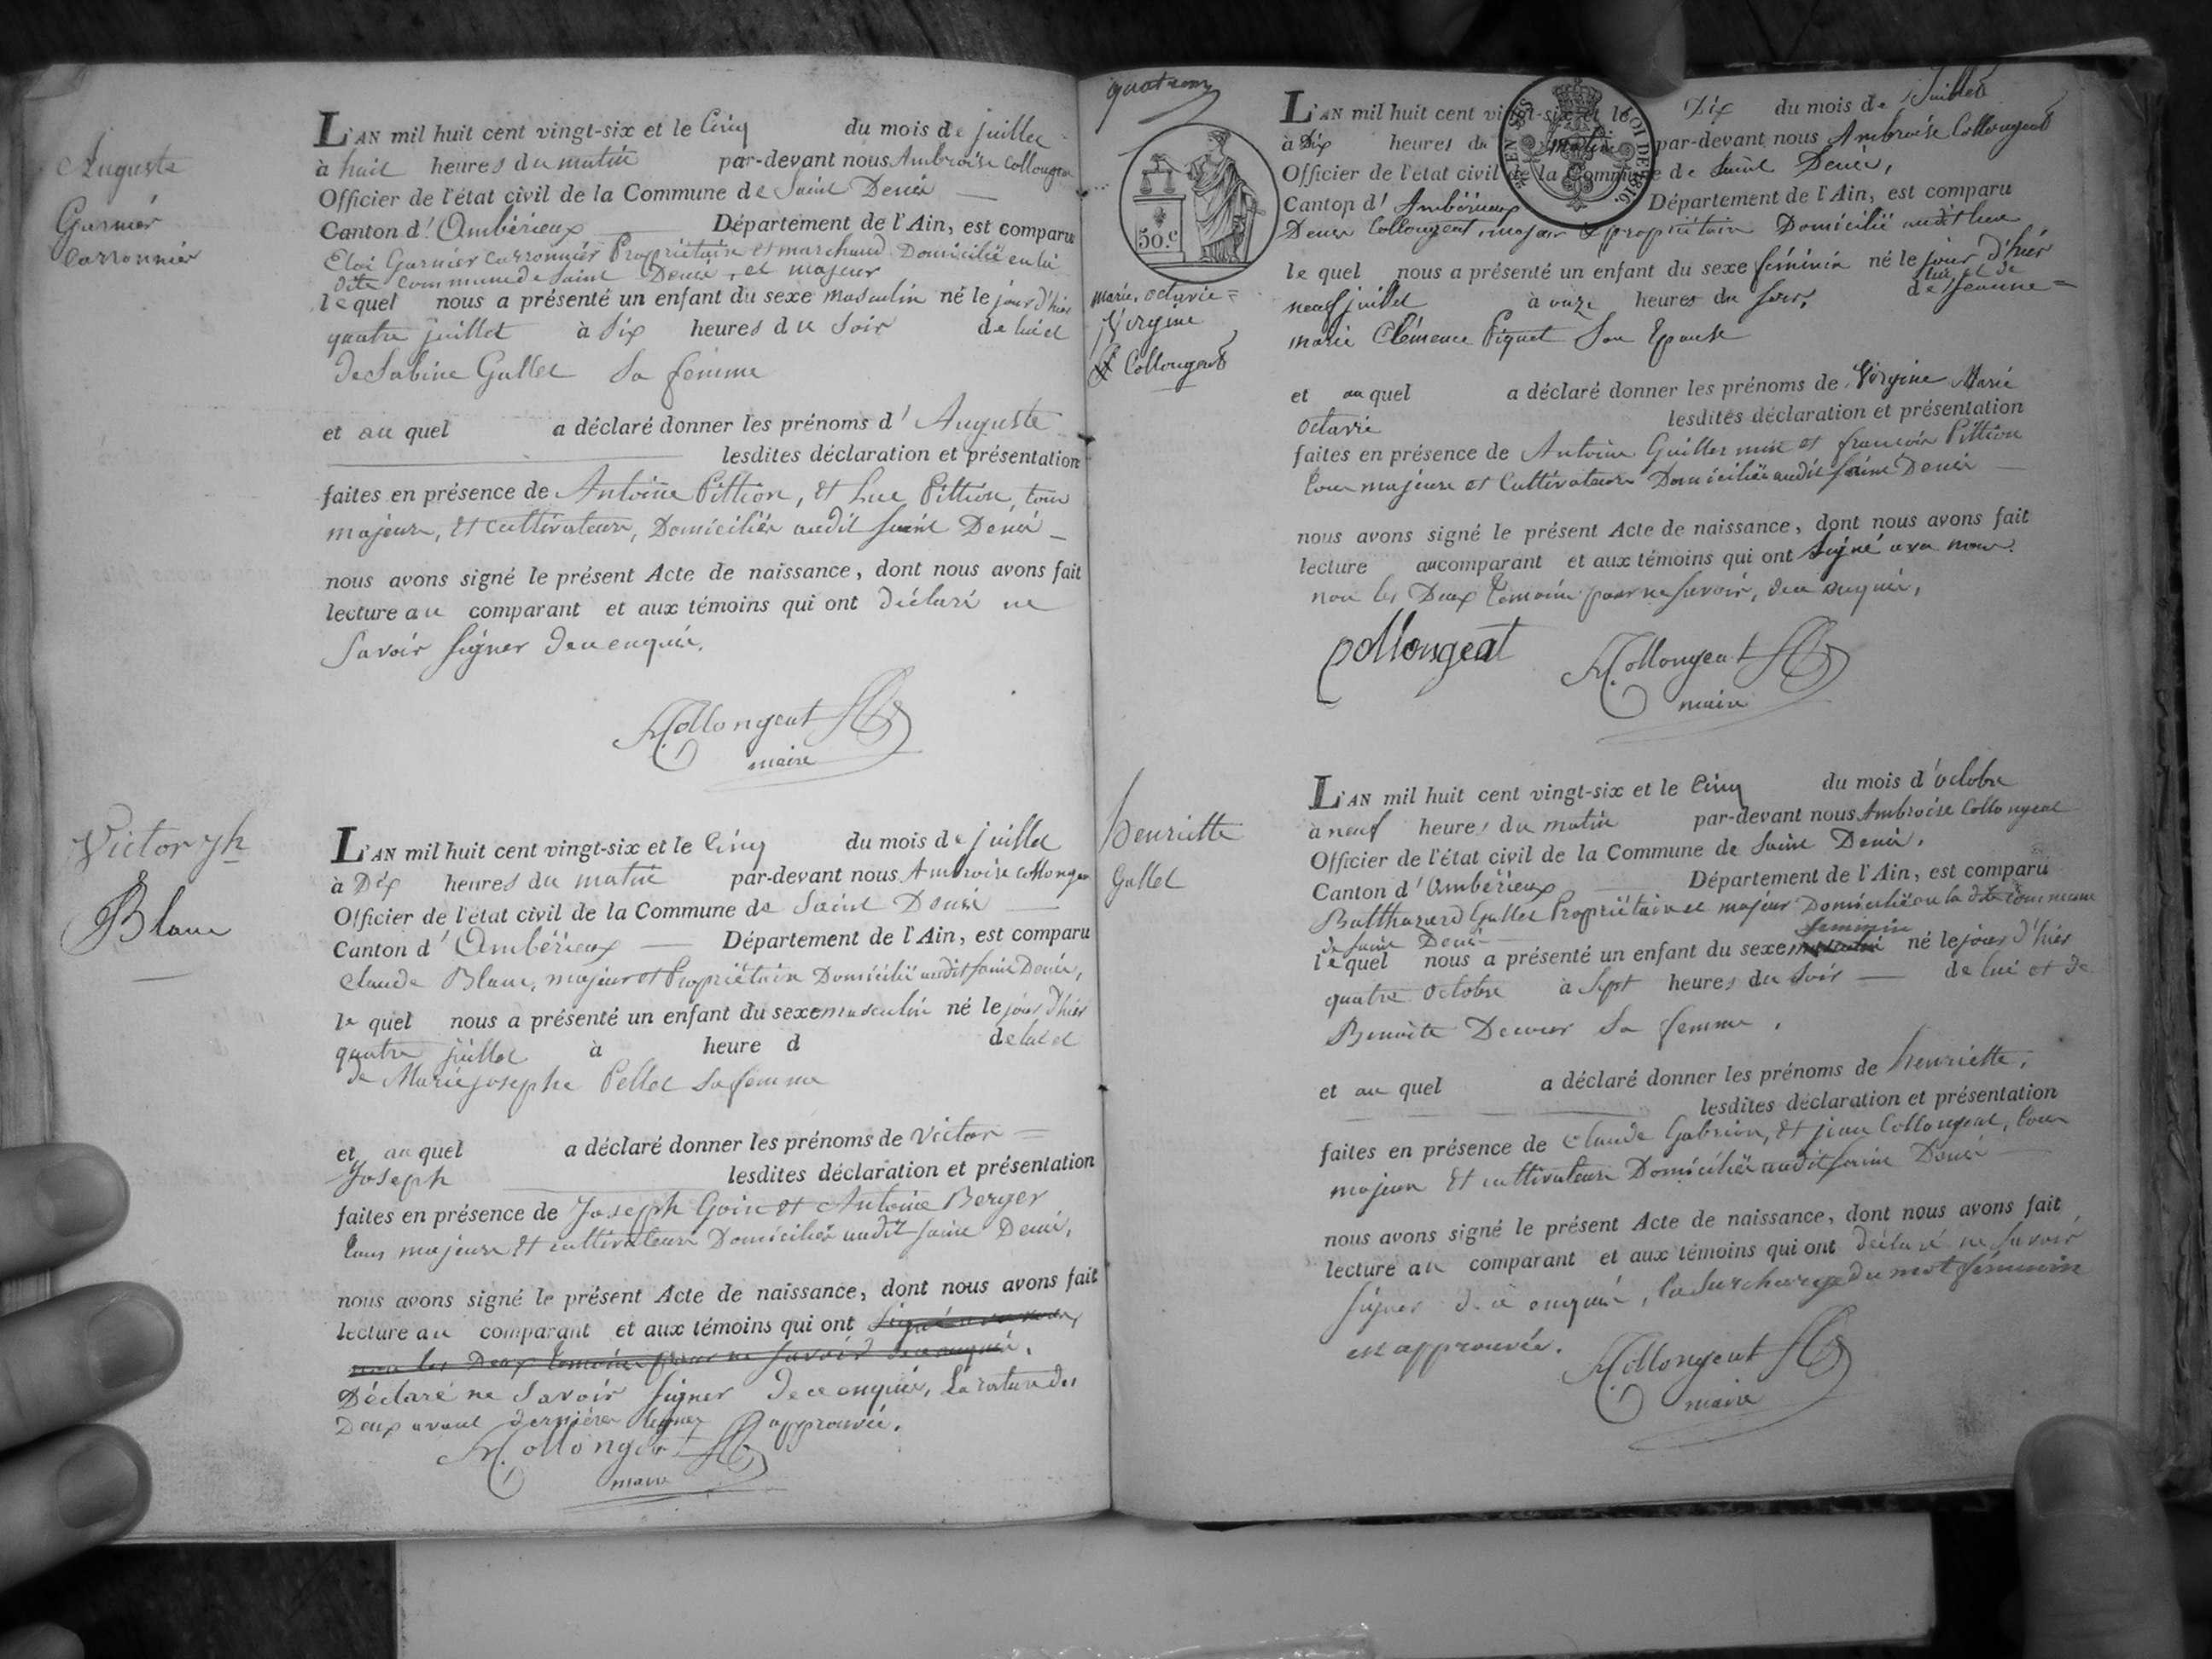 Auguste
Garnier
Carronnier
L'AN mil huit cent vingt-six et le Cinq du mois de juillet
à huit heures du matin par-devant nous Ambroise Collongeat
Officier de l'état civil de la Commune de Saint Denis
Canton d'Ambérieux Département de l'Ain, est comparu
Eloi Garnier Carronnier Propriétaire et marchand Domicilié en la
dite commune de Saint Denis, et majeur
lequel nous a présenté un enfant du sexe masculin né le jour d'hier
quatre juillet à Six heures du Soir de lui et
de Sabine Gullet Sa femme
et au quel a déclaré donner les prénoms d'Auguste
lesdites déclaration et présentation
faites en présence de Antoine Pittion, et Luc Pittion, tous
majeurs, et cultivateurs, Domiciliés audit Saint Denis
nous avons signé le présent Acte de naissance, dont nous avons fait
lecture au comparant et aux témoins qui ont déclaré ne
Savoir Signer de ce enquis.
Collongeat
maire
Victor Jh
Blanc
L'AN mil huit cent vingt-six et le Cinq du mois de juillet
à Dix heures du matin par-devant nous Ambroise Collongeat
Officier de l'état civil de la Commune de Saint Denis
Canton d'Ambérieux Département de l'Ain, est comparu
Claude Blanc, majeur et Propriétaire Domicilié audit Saint Denis,
le quel nous a présenté un enfant du sexe masculin né le jour d'hier
quatre juillet à heure d de lui et
de Marie Josephe Pellet Sa femme
et au quel a déclaré donner les prénoms de Victor
Joseph lesdites déclaration et présentation
faites en présence de Joseph Goin et Antoine Berger
tous majeurs et cultivateurs Domiciliés audit Saint Denis,
nous avons signé le présent Acte de naissance, dont nous avons fait
lecture au comparant et aux témoins qui ont Signé avec nous
non les Deux témoins pour ne Savoir de ce enquis.
Déclaré ne Savoir Signer de ce enquis, La rature des
Deux avant dernières lignes approuvée.
Collongeat
maire
50.c
marie, octavie
Virgine
Collongeat
L'AN mil huit cent vingt-six et le Dix du mois de Juillet
à Dix heures du matin par-devant nous Ambroise Collongeat
Officier de l'état civil de la Commune de Saint Denis,
Canton d'Ambérieux Département de l'Ain, est comparu
Denis Collongeat, majeur et propriétaire Domicilié audit lieu
le quel nous a présenté un enfant du sexe féminin né le jour d'hier
neuf juillet à onze heures du Soir, de lui et de Jeanne
marie Clémence Piquet Son Epouse
et au quel a déclaré donner les prénoms de Virgine Marie
Octavie lesdites déclaration et présentation
faites en présence de Antoine Guillermin et françois Pittion
tous majeurs et Cultivateurs Domiciliés audit Saint Denis
nous avons signé le présent Acte de naissance, dont nous avons fait
lecture au comparant et aux témoins qui ont Signé avec nous.
non les Deux témoins pour ne Savoir, de ce enquis,
Collongeat Collongeat
maire
LOI DE 1816
henriette
Gullet
L'AN mil huit cent vingt-six et le Cinq du mois d'octobre
à neuf heures du matin par-devant nous Ambroise Collongeat
Officier de l'état civil de la Commune de Saint Denis,
Canton d'Ambérieux Département de l'Ain, est comparu
Balthazard Gullet Propriétaire et majeur Domicilié en la dite commune
de Saint Denis féminin
lequel nous a présenté un enfant du sexe masculin né le jour d'hier
quatre octobre à Sept heures du Soir de lui et de
Benoite Sa femme,
et au quel a déclaré donner les prénoms de henriette,
lesdites déclaration et présentation
faites en présence de Claude Gabrion, et jean Collongeat, tous
majeurs et cultivateurs Domiciliés audit Saint Denis
nous avons signé le présent Acte de naissance, dont nous avons fait
lecture au comparant et aux témoins qui ont déclaré ne Savoir
Signer de ce enquis, la Surcharge du mot féminin
est approuvée.
Collongeat
maire